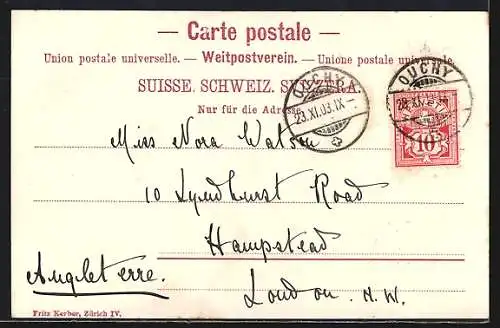 — Carte postale —
Union postale universelle. — Weltpostverein. — Unione postale universale.
SUISSE. SCHWEIZ. SVIZZERA.
Nur für die Adresse.
OUCHY
23.XI.03.IX–
OUCHY
23.XI.
10
Miss Nora Watson
10 Lyndhurst Road
Hampstead
Angleterre.
London. N.W.
Fritz Kerber, Zürich IV.